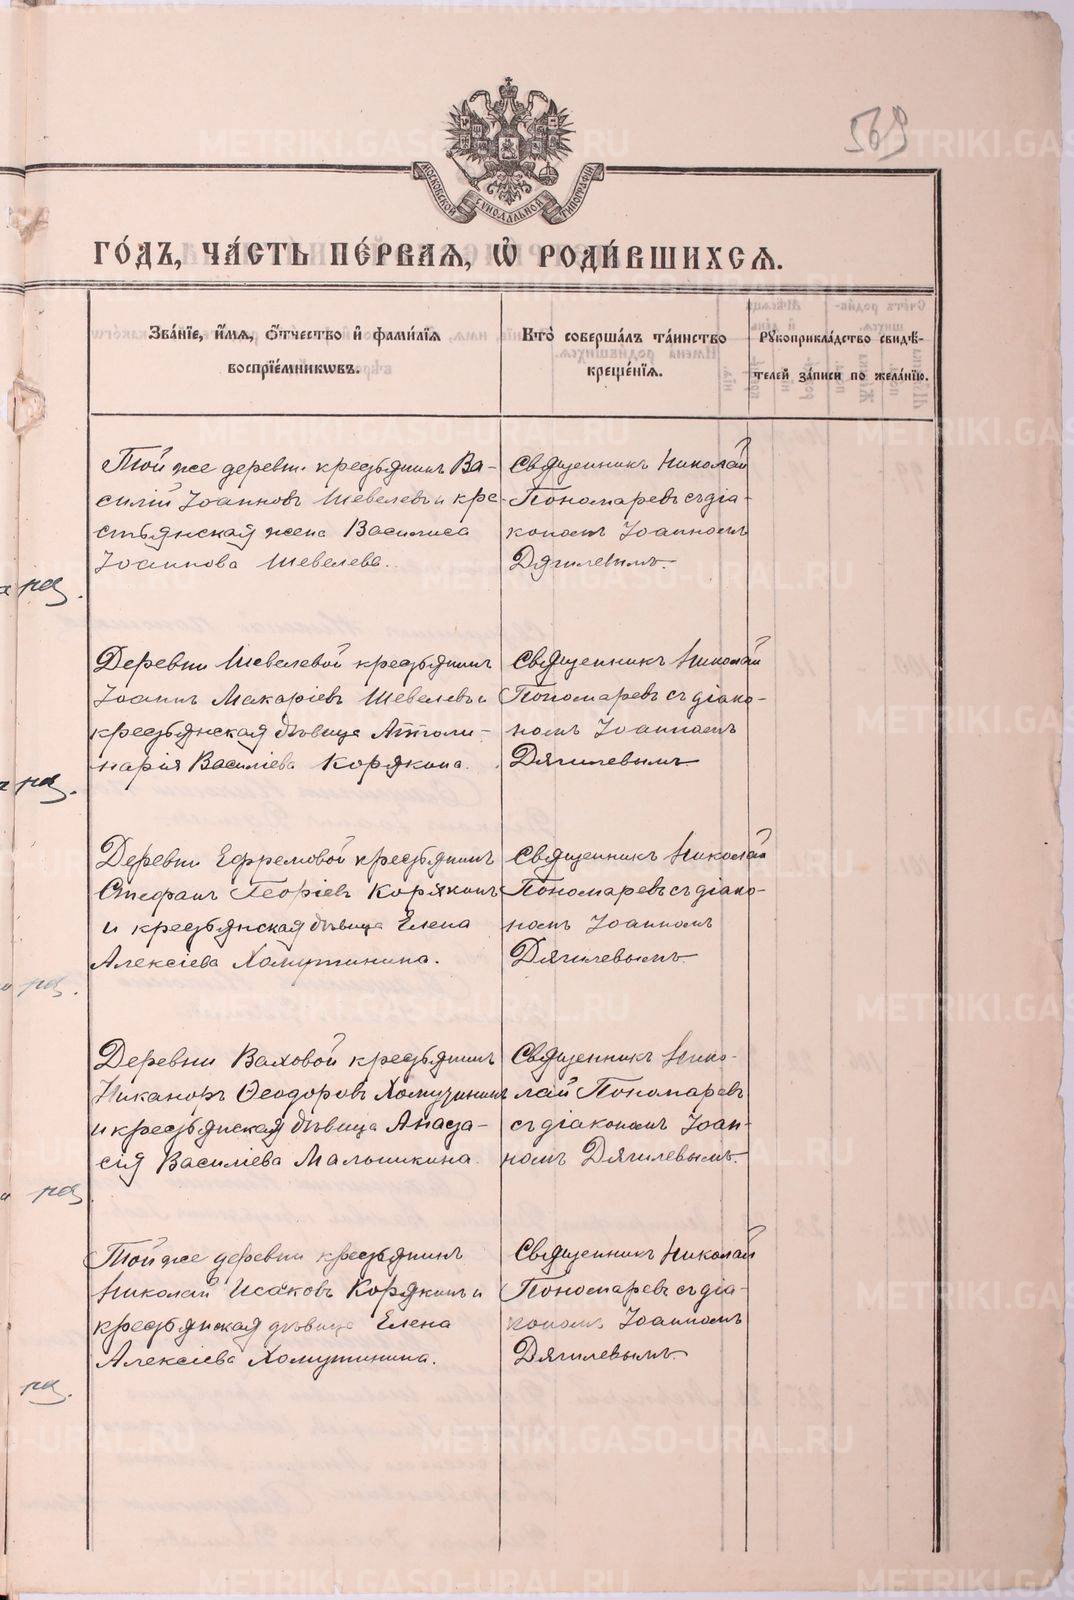 569
МОСКОВСКОЙ СѴНОДАЛЬНОЙ ТИПОГРАФІИ
ГО́ДЪ, ЧА́СТЬ ПЕ́РВАЯ, Ѡ҆ РОДИ́ВШИХСЯ.
Зва́нїе, и҆́мѧ, ѻ҆́тчество и҆ фамилїѧ
воспрїе́мникѡвъ.
Кто̀ соверша́лъ та́инство
креще́нїѧ.
Рꙋкоприкла́дство свидѣ́-
телей за́писи по жела́нїю.
Той же деревни крестьянинъ Ва-
силій Іоанновъ Шевелевъ и кре-
стьянская жена Василиса
Іоаннова Шевелева.
Священникъ Николай
Пономаревъ съ діа-
кономъ Іоанномъ
Дягилевымъ.
Деревни Шевелевой крестьянинъ
Іоаннъ Макаріевъ Шевелевъ и
крестьянская дѣвица Аполи-
нарія Василіева Корякина.
Священникъ Николай
Пономаревъ съ діако-
номъ Іоанномъ
Дягилевымъ.
Деревни Ефремовой крестьянинъ
Стефанъ Георгіевъ Корякинъ
и крестьянская дѣвица Елена
Алексіева Хомутинина.
Священникъ Николай
Пономаревъ съ діако-
номъ Іоанномъ
Дягилевымъ.
Деревни Ваховой крестьянинъ
Никаноръ Ѳеодоровъ Хомутининъ
и крестьянская дѣвица Анаста-
сія Василіева Малышкина.
Священникъ Нико-
лай Пономаревъ
съ діакономъ Іоан-
номъ Дягилевымъ.
Той же деревни крестьянинъ
Николай Исаковъ Корякинъ и
крестьянская дѣвица Елена
Алексіева Хомутинина.
Священникъ Николай
Пономаревъ съ діа-
кономъ Іоанномъ
Дягилевымъ.
METRIKI.GASO-URAL.RU